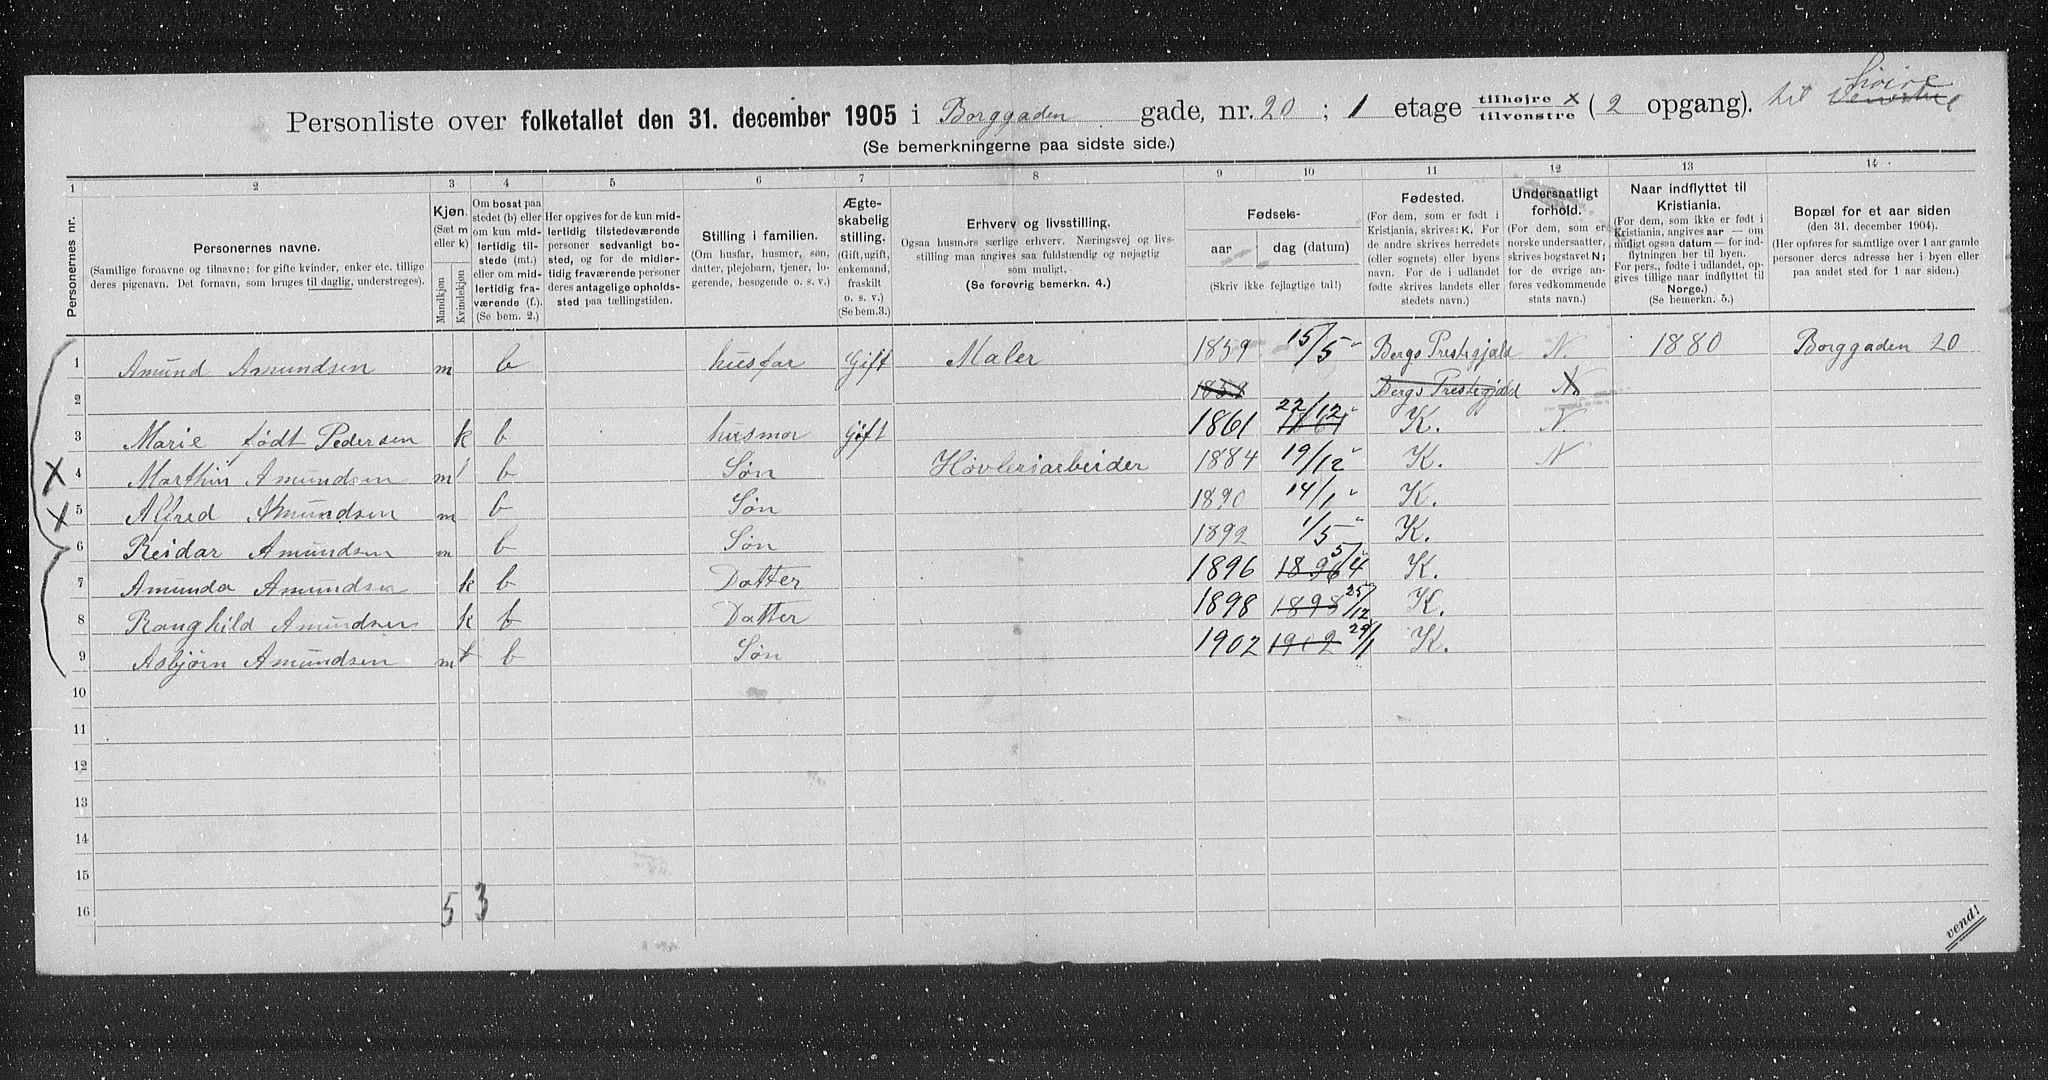 høire
Personliste over folketallet den 31. december 1905 i Borggaden gade, nr. 20 ; 1 etage tilhøjre X / tilvenstre (2 opgang). til venstre
(Se bemerkningerne paa sidste side.)
1 2 3 4 5 6 7 8 9 10 11 12 13 14
Personernes nr.
Personernes navne.
(Samtlige fornavne og tilnavne; for gifte kvinder, enker etc. tillige
deres pigenavn. Det fornavn, som bruges til daglig, understreges).
Kjøn.
(Sæt m
eller k)
Mandkjøn
Kvindekjøn
Om bosat paa
stedet (b) eller
om kun mid-
lertidig til-
stede (mt.)
eller om mid-
lertidig fra-
værende (f.).
(Se bem. 2.)
Her opgives for de kun mid-
lertidig tilstedeværende
personer sedvanligt bo-
sted, og for de midler-
tidig fraværende personer
deres antagelige opholds-
sted paa tællingstiden.
Stilling i familien.
(Om husfar, husmor, søn,
datter, plejebarn, tjener, lo-
gerende, besøgende o. s. v.)
Ægte-
skabelig
stilling.
(Gift, ugift,
enkemand,
fraskilt
o. s. v.)
(Se bem.3.)
Erhverv og livsstilling.
Ogsaa husmors særlige erhverv. Næringsvej og livs-
stilling maa angives saa fuldstændig og nøjagtig
som muligt.
(Se forøvrig bemerkn. 4.)
Fødsels-
aar dag (datum)
(Skriv ikke fejlagtige tal!)
Fødested.
(For dem, som er født i
Kristjania, skrives: K. For
de andre skrives herredets
(eller sognets) eller byens
navn. For de i udlandet
fødte skrives landets eller
stedets navn.)
Undersaatligt
forhold.
(For dem, som er
norske undersaatter,
skrives bogstavet N;
for de øvrige an-
føres vedkommende
stats navn.)
Naar indflyttet til
Kristiania.
(For dem, som ikke er født i
Kristiania, angives aar — om
muligt ogsaa datum — for ind-
flytningen her til byen.
For pers., fødte i udlandet, op-
gives tillige naar indflyttet til
Norge.)
(Se bemerkn. 5.)
Bopæl for et aar siden
(den 31. december 1904).
(Her opføres for samtlige over 1 aar gamle
personer deres adresse her i byen eller
paa andet sted for 1 aar siden.)
1 Amund Amundsen m b husfar Gift Maler 1859 15/5 Bergs Prestegjæld N. 1880 Borggaden 20
2 1859 Bergs Prestegjæld N
3 Marie født Pedersen k b husmor Gift 1861 1861 22/12 K. N.
X 4 Marthin Amundsen m b Søn Høvleriarbeider 1884 19/12 K. N
X 5 Alfred Amundsen m b Søn 1890 14/1 K.
6 Reidar Amundsen m b Søn 1892 1/5 K.
7 Amunda Amundsen k b Datter 1896 1896 5/4 K.
8 Ranghild Amundsen k b Datter 1898 1898 25/12 K.
9 Asbjørn Amundsen m b Søn 1902 1902 29/1 K.
10
11
12
13
14
15
16 5 3
vend!